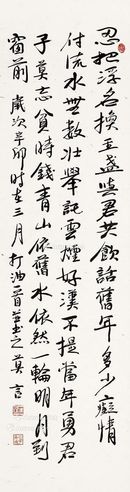 忍把浮名换五盏与君共饮话旧年多少痴情
付流水无数壮举託云烟好汉不提当年勇君
子莫忘贫时钱青山依旧水依然一轮明月到
窗前 岁次辛卯时在三月打油一首并书之莫言